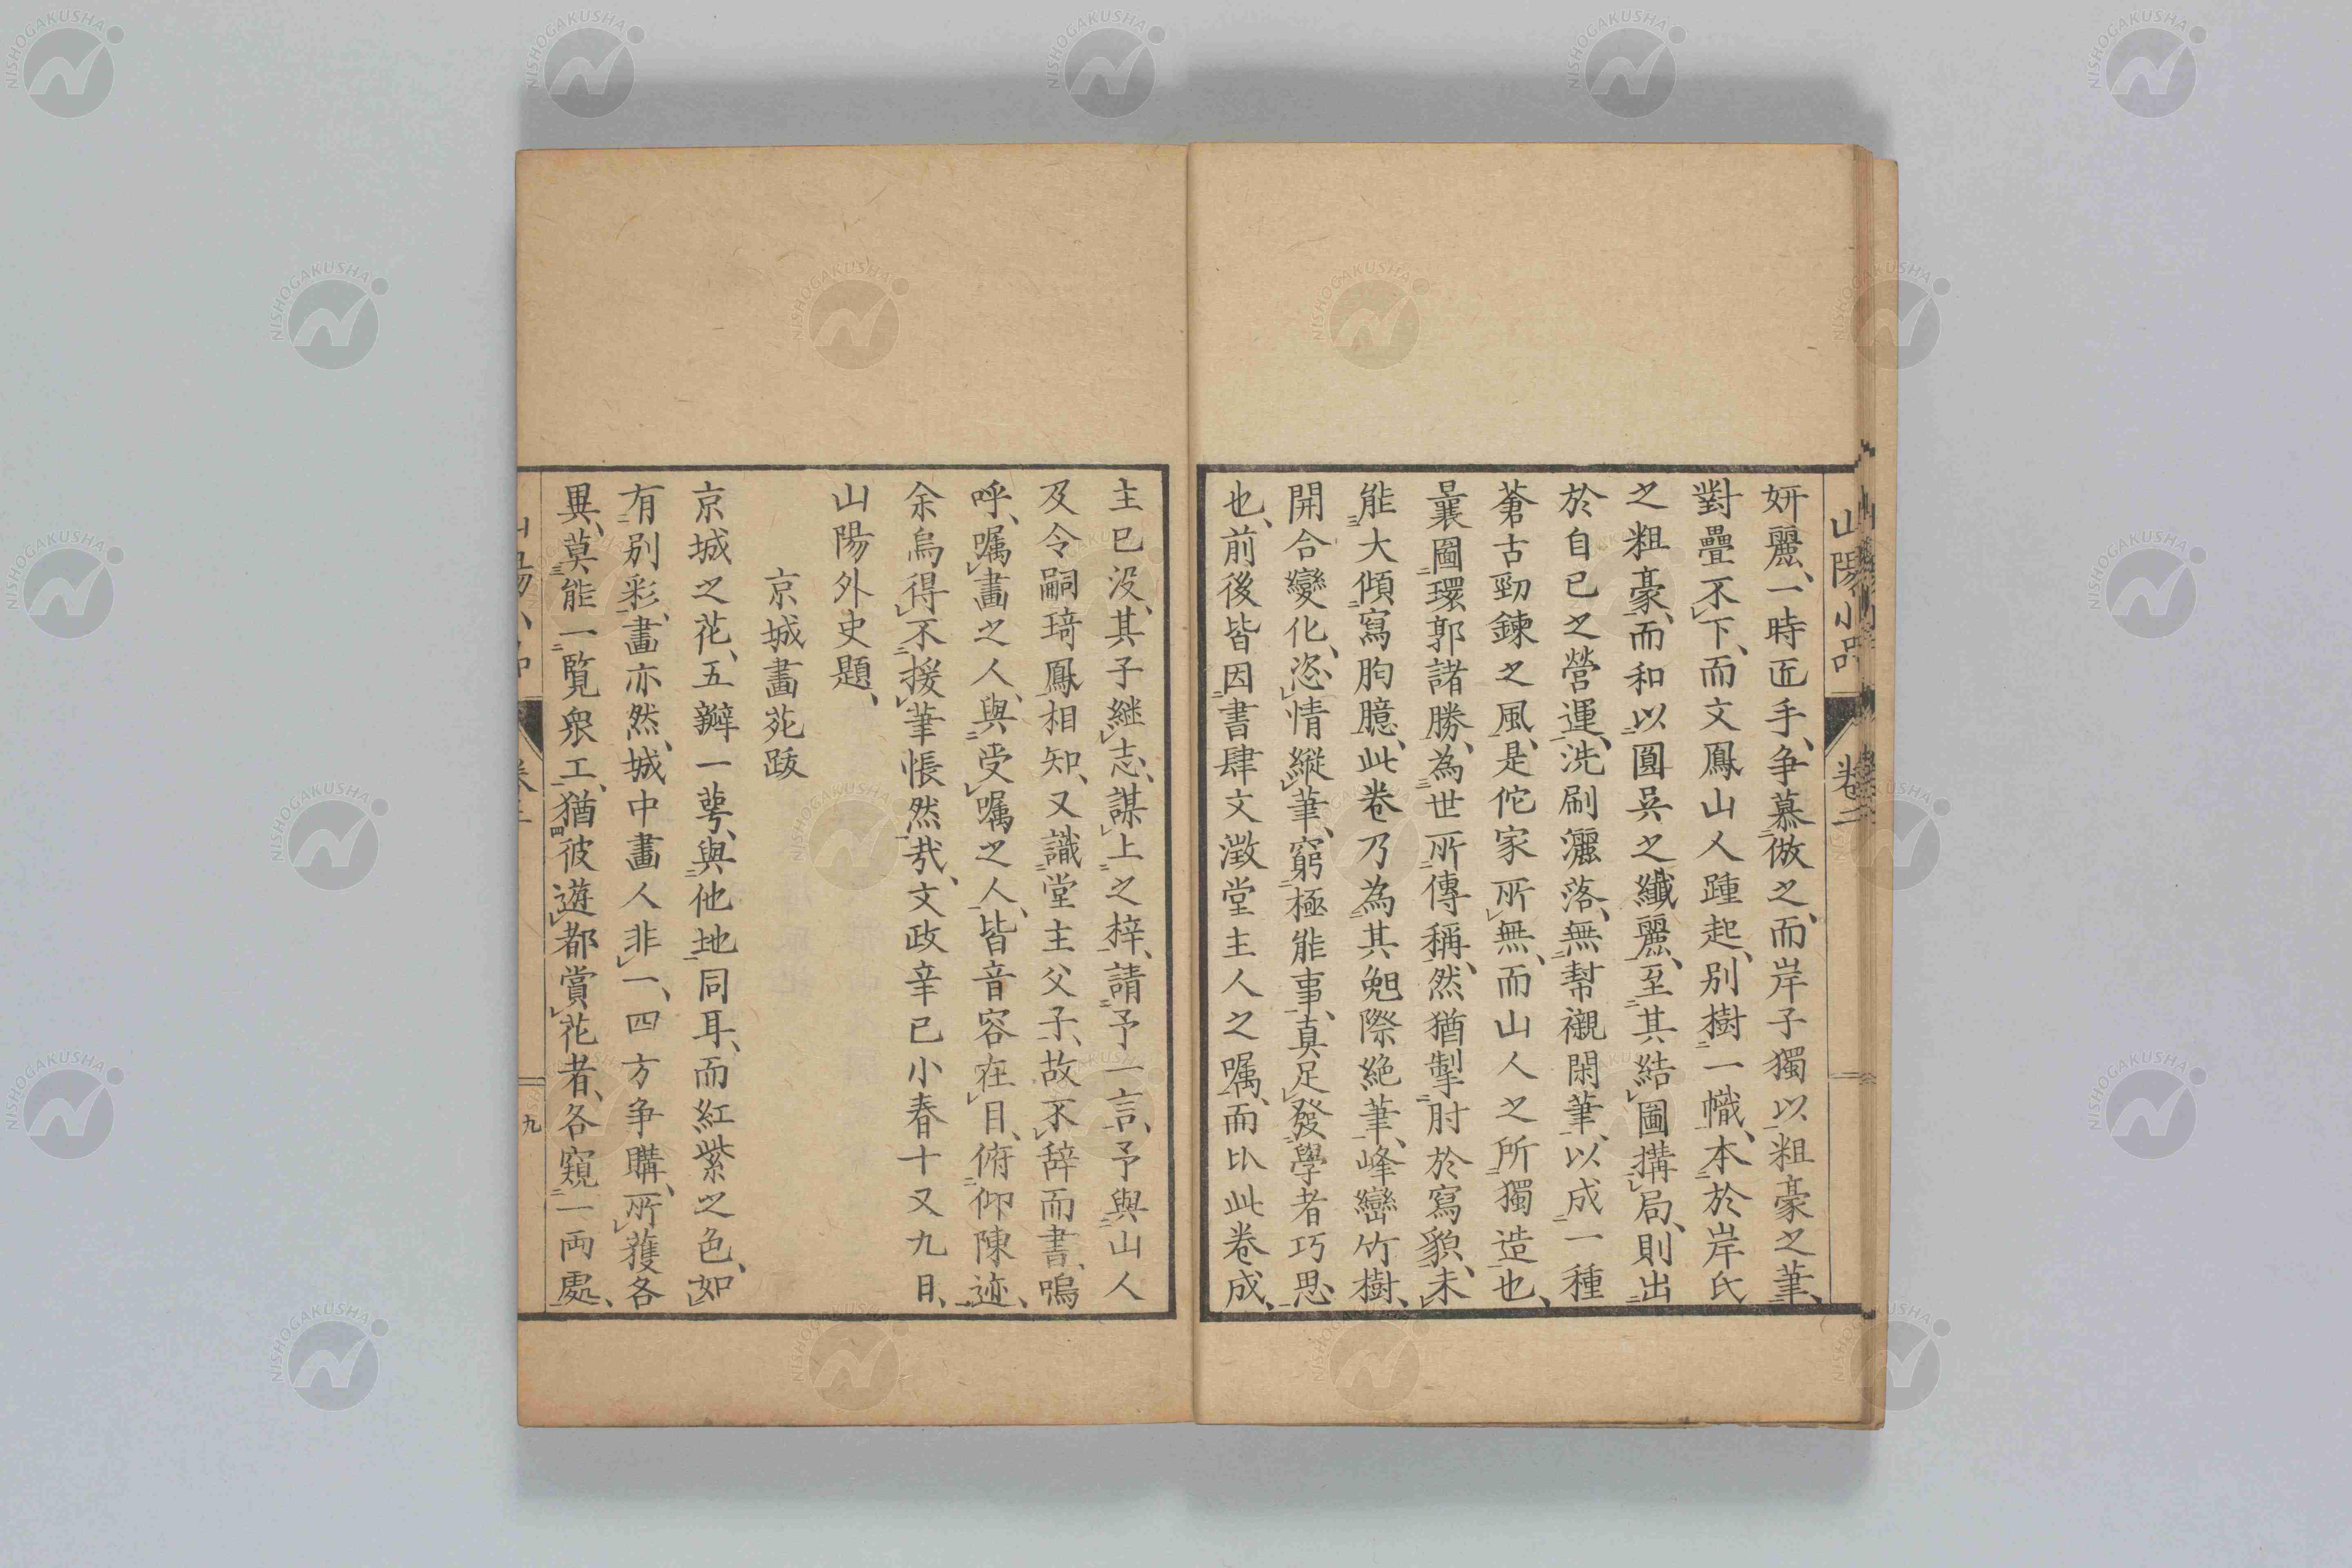 山陽小品 卷二
妍麗、一時匠手、争慕倣之、而岸子獨以粗豪之筆、
對疊不下、而文鳳山人踵起、別樹一幟、本於岸氏
之粗豪、而和以圓吳之纖麗、至其結圖搆局、則出
於自已之營運、洗刷灑落、無幇襯閑筆、以成一種
蒼古勁鍊之風、是佗家所無、而山人之所獨造也、
曩圖環郭諸勝、為世所傳稱、然猶掣肘於寫貌、未
能大傾寫胸臆、此卷乃為其 際絶筆、峰巒竹樹、
開合變化、恣情縱筆、窮極能事、真足發學者巧思
也、前後皆因書肆文澂堂主人之嘱、而比此卷成、
主已没、其子継志、謀上之梓、請予一言、予與山人
及令嗣琦鳳相知、又識堂主父子、故不辞而書、嗚
呼、嘱畫之人、與受嘱之人、皆音容在日、俯仰陳迹、
余烏得不援筆悵然哉、文政辛已小春十又九日、
山陽外史題、
京城畫苑跋
京城之花、五瓣一萼、與他地同耳、而紅紫之色、如
有別彩、畫亦然、城中畫人非一、四方争購、所蒦各
異、莫能一覧衆工、猶彼遊都賞花者、各窺一両處、
九